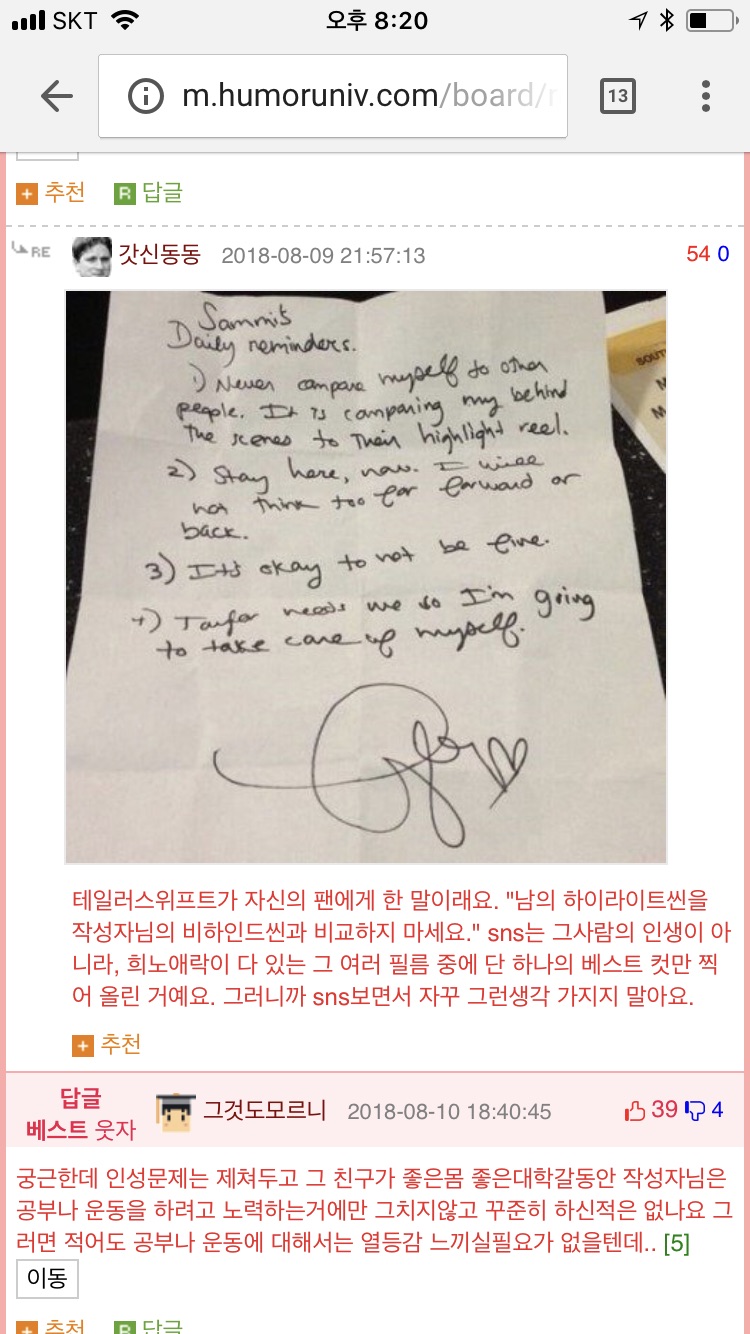 SKT
오후 8:20
m.humoruniv.com/board/
13
추천
R 답글
RE
갓신동동 2018-08-09 21:57:13
54 0
Sammi's
Daily reminders.
1) Never compare myself to other
people. It is comparing my behind
the scenes to their highlight reel.
2) Stay here, now. I will
not think too far forward or
back.
3) It's okay to not be fine.
4) Taylor needs me so I'm going
to take care of myself.
SOUT
테일러스위프트가 자신의 팬에게 한 말이래요. "남의 하이라이트씬을
작성자님의 비하인드씬과 비교하지 마세요." sns는 그사람의 인생이 아
니라, 희노애락이 다 있는 그 여러 필름 중에 단 하나의 베스트 컷만 찍
어 올린 거예요. 그러니까 sns보면서 자꾸 그런생각 가지지 말아요.
추천
답글
베스트 웃자
그것도모르니 2018-08-10 18:40:45
39 4
궁근한데 인성문제는 제쳐두고 그 친구가 좋은몸 좋은대학갈동안 작성자님은
공부나 운동을 하려고 노력하는거에만 그치지않고 꾸준히 하신적은 없나요 그
러면 적어도 공부나 운동에 대해서는 열등감 느끼실필요가 없을텐데.. [5]
이동
추천
R 답글